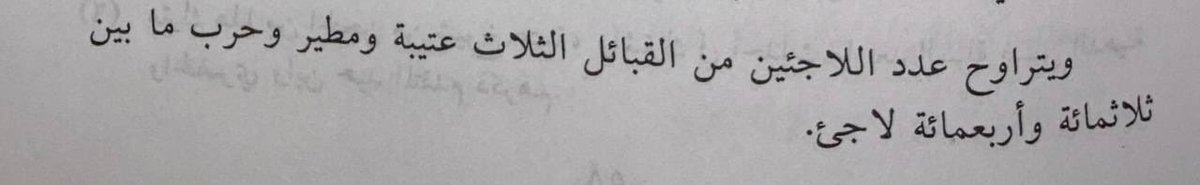 ويتراوح عدد اللاجئين من القبائل الثلاث عتيبة ومطير وحرب ما بين
ثلاثمائة وأربعمائة لاجئ.